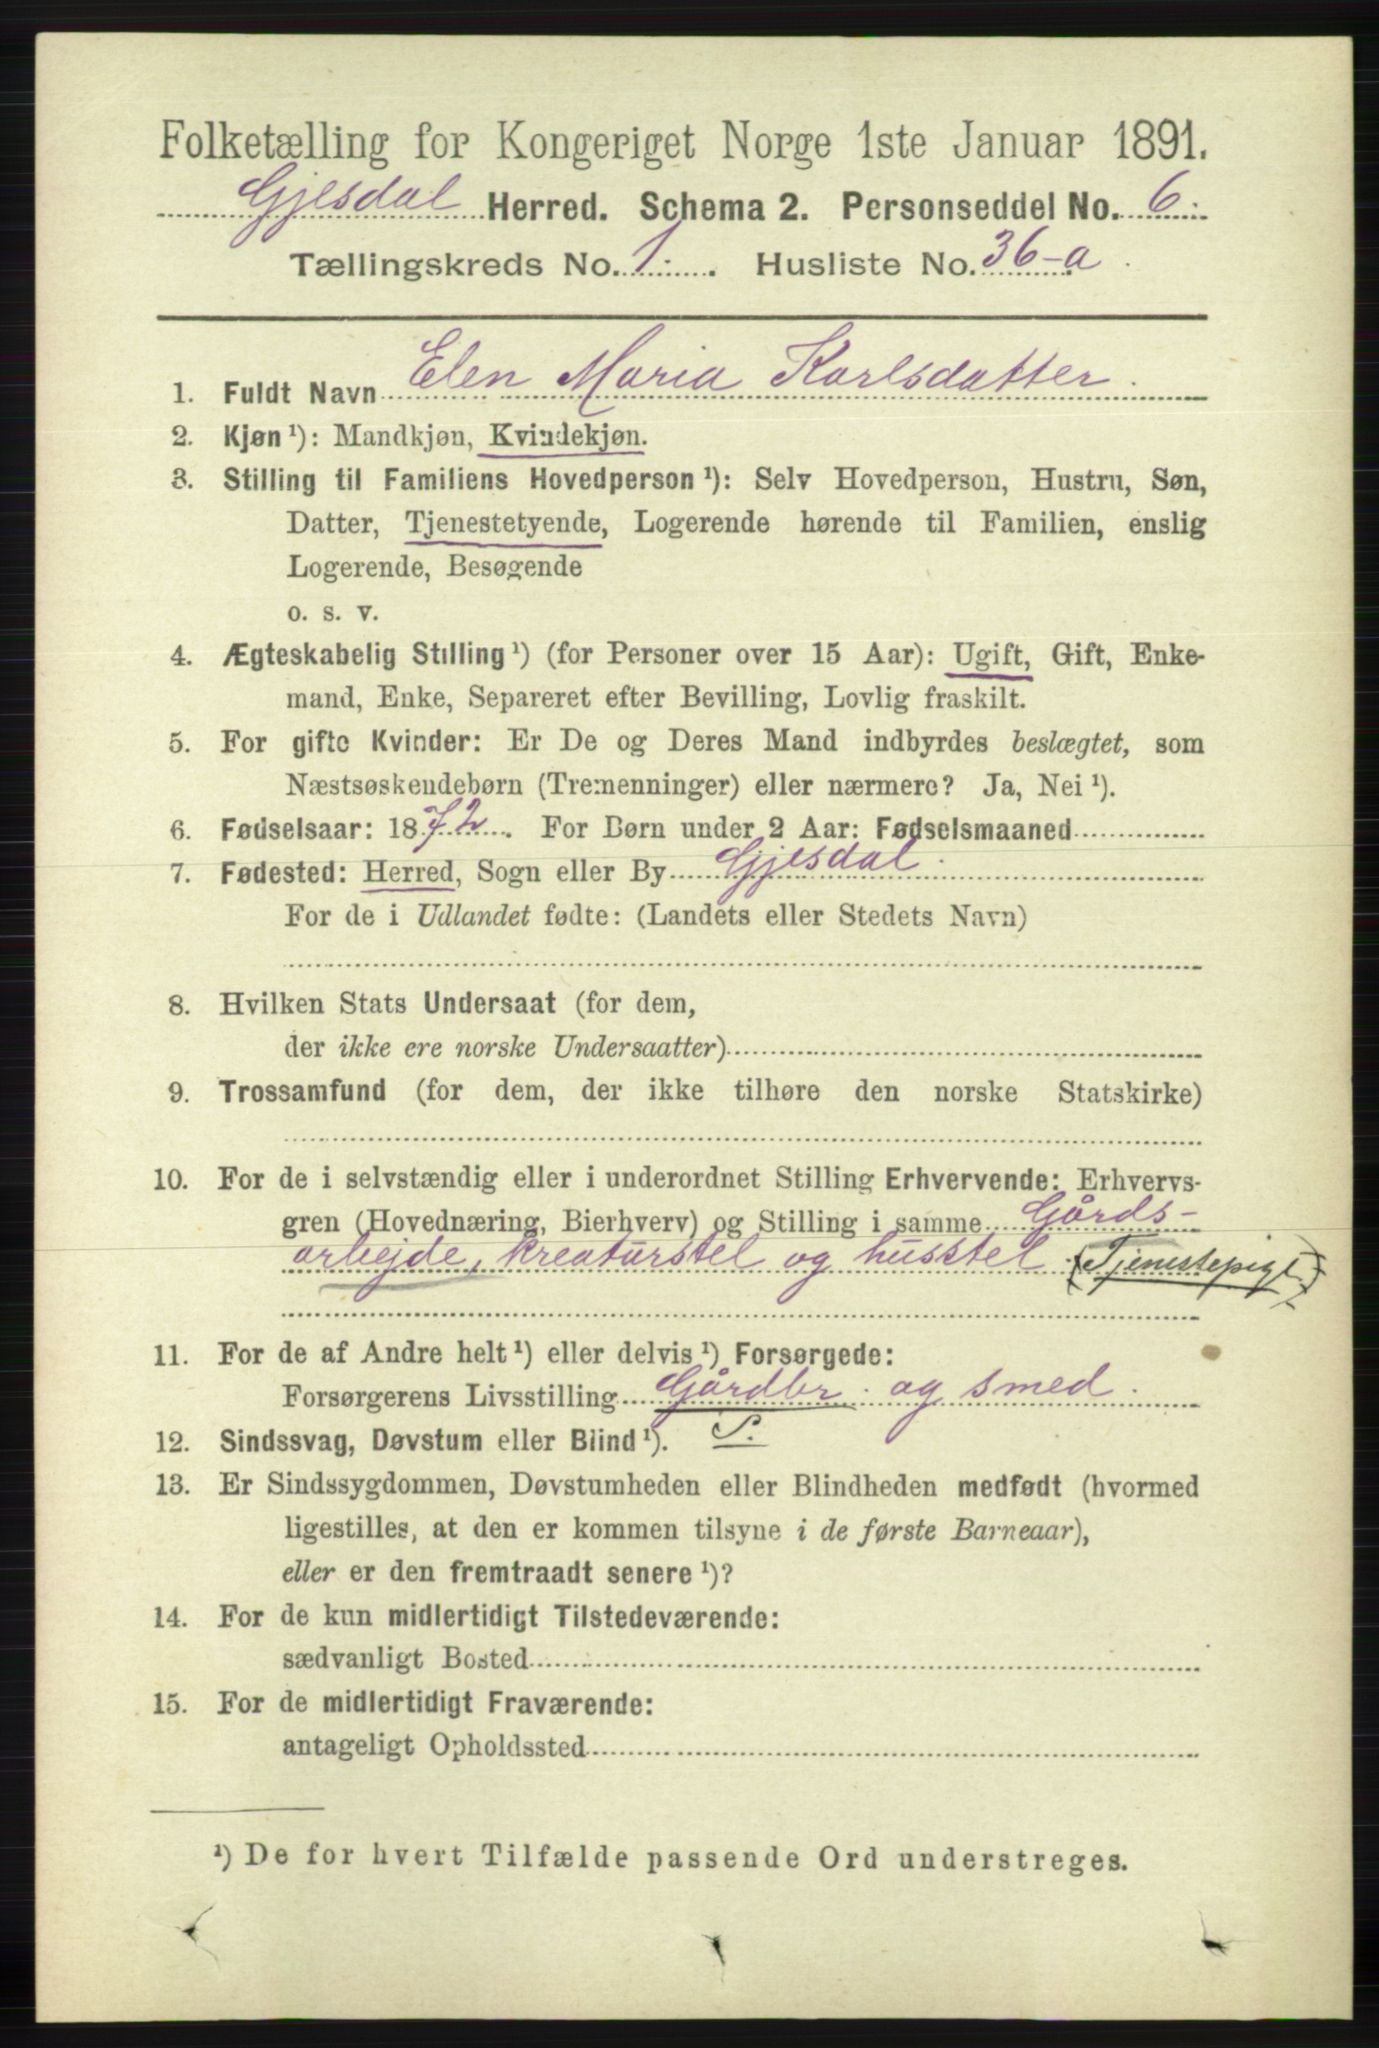 Folketælling for Kongeriget Norge 1ste Januar 1891.
Gjesdal Herred. Schema 2. Personseddel No. 6.
Tællingskreds No. 1. Husliste No. 36-a.
1. Fuldt Navn Elen Maria Karlsdatter.
2. Kjøn ¹): Mandkjøn, Kvindekjøn.
3. Stilling til Familiens Hovedperson ¹): Selv Hovedperson, Hustru, Søn,
Datter, Tjenestetyende, Logerende hørende til Familien, enslig
Logerende, Besøgende
o. s. v.
4. Ægteskabelig Stilling ¹) (for Personer over 15 Aar): Ugift, Gift, Enke-
mand, Enke, Separeret efter Bevilling, Lovlig fraskilt.
5. For gifte Kvinder: Er De og Deres Mand indbyrdes beslægtet, som
Næstsøskendebørn (Tremenninger) eller nærmere? Ja, Nei ¹).
6. Fødselsaar: 1872. For Børn under 2 Aar: Fødselsmaaned
7. Fødested: Herred, Sogn eller By Gjesdal.
For de i Udlandet fødte: (Landets eller Stedets Navn)
8. Hvilken Stats Undersaat (for dem,
der ikke ere norske Undersaatter)
9. Trossamfund (for dem, der ikke tilhøre den norske Statskirke)
10. For de i selvstændig eller i underordnet Stilling Erhvervende: Erhvervs-
gren (Hovednæring, Bierhverv) og Stilling i samme Gårds-
arbejde, kreaturstel og husstel (Tjenestepige)
11. For de af Andre helt ¹) eller delvis ¹) Forsørgede:
Forsørgerens Livsstilling Gårdbr. og smed.
12. Sindssvag, Døvstum eller Blind ¹). S.
13. Er Sindssygdommen, Døvstumheden eller Blindheden medfødt (hvormed
ligestilles, at den er kommen tilsyne i de første Barneaar),
eller er den fremtraadt senere ¹)?
14. For de kun midlertidigt Tilstedeværende:
sædvanligt Bosted
15. For de midlertidigt Fraværende:
antageligt Opholdssted
¹) De for hvert Tilfælde passende Ord understreges.